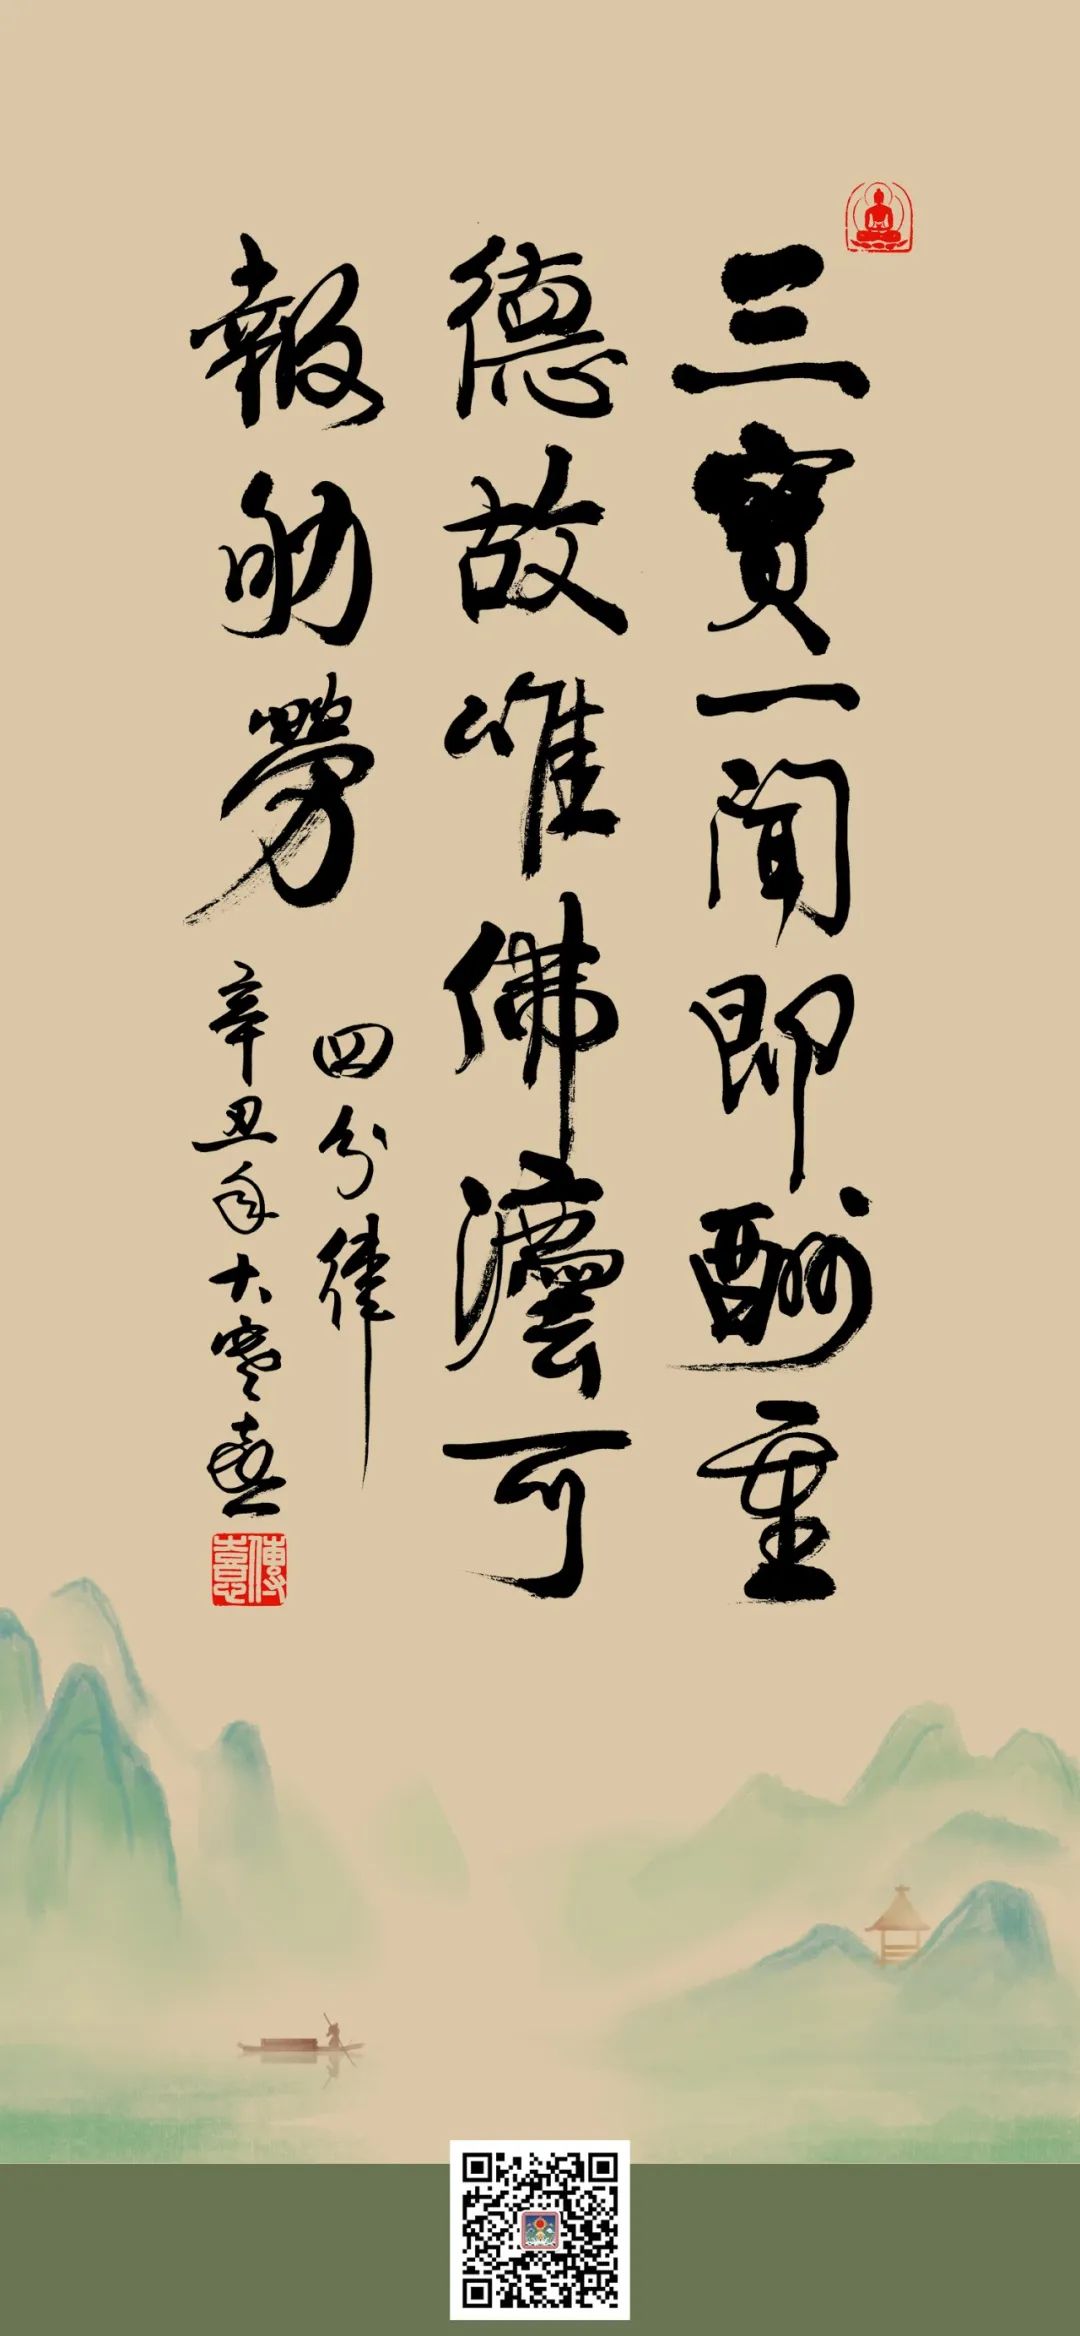 三寶一聞即酬重
德故唯佛灋可
報劬勞
四分律
辛丑年大寒
傳喜